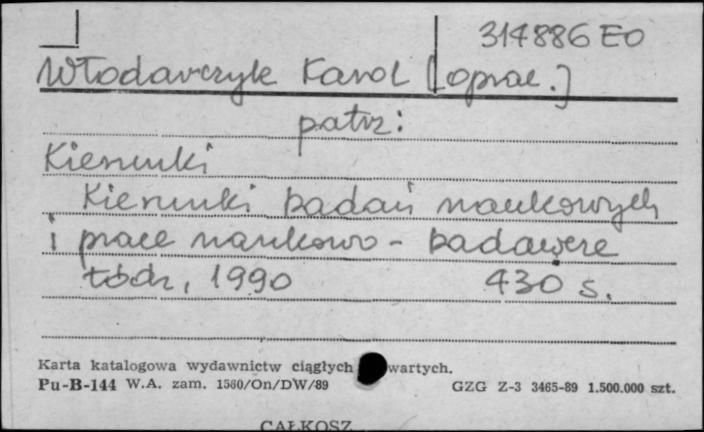 314886 EO
Włodarczyk Karol [oprac.]
patrz:
Kierunki
Kierunki badań naukowych
i prace naukowo-badawcze
Łódź, 1990 430 s.
Karta katalogowa wydawnictw ciągłych wartych.
Pu-B-144 W.A. zam. 1560/On/DW/89 GZG Z-3 3465-89 1.500.000 szt.
CAŁKOSZ